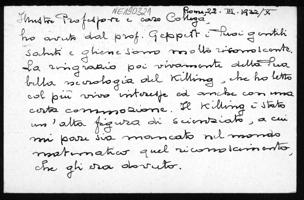 NE180324
Roma, 22. III. 1932/X
Illustre Professore e caro Collega,
ho avuto dal prof. Geppert i Suoi gentili
saluti e gliene sono molto riconoscente.
La ringrazio poi vivamente della Sua
bella necrologia del Killing, che ho letto
col più vivo interesse ed anche con una
certa commozione. Il Killing è stato
un'alta figura di scienziato, a cui
mi pare sia mancato nel mondo
matematico quel riconoscimento,
che gli era dovuto.